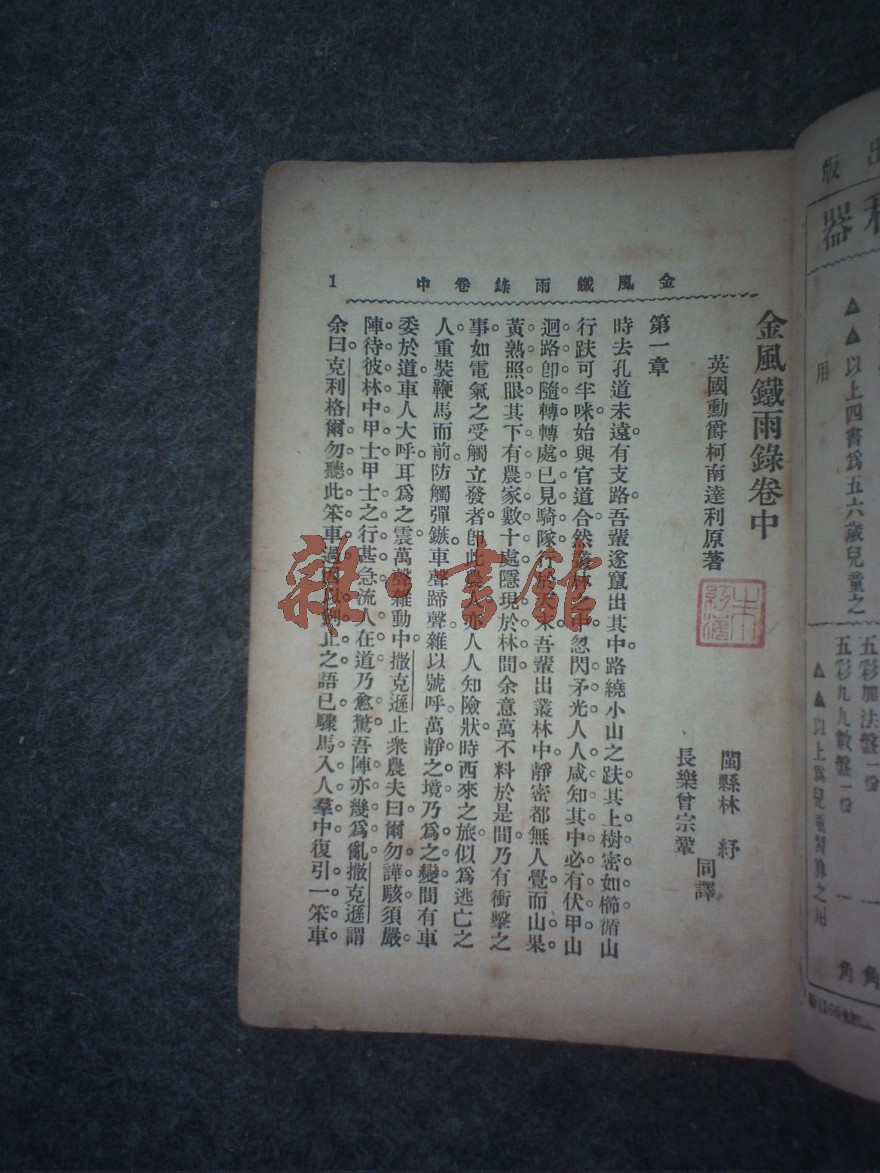 版
器
▲▲以上四書爲五六歲兒童之用
五彩加法盤一份 一角
五彩九九數盤一份 一角
▲▲以上爲兒童習算之用
金風鐵雨錄卷中 1
金風鐵雨錄卷中
英國勳爵柯南達利原著
閩縣林 紓
長樂曾宗鞏
同譯
第一章
時去孔道未遠。有支路。吾輩遂竄出其中。路繞小山之趺。其上樹密如櫛。循山
行趺可半咪。始與官道合。然叢林之中忽閃矛光。人人咸知其中必有伏甲。山
迴路卽隨轉。轉處已見騎隊行於天末。吾輩出叢林中。靜密都無人覺。而山果
黃熟照眼。其下有農家數十處。隱現於林間。余意萬不料於是間乃有衝擊之
事。如電氣之受觸立發者。卽此農人亦人人知險狀。時西來之旅。似爲逃亡之
人。重裝鞭馬而前。防觸彈鏃。車聲蹄聲。雜以號呼。萬靜之境。乃爲之變。間有車
委於道。車人大呼。耳爲之震。萬聲雜動中。撒克遜止衆農夫曰。爾勿譁駭。須嚴
陣待彼林中甲士。甲士之行甚急。流人在道乃愈驚。吾陣亦幾爲亂。撒克遜謂
余曰。克利格爾勿聽此笨車過。因以劍止之。語已。驟馬入人羣中。復引一笨車
雜·書館